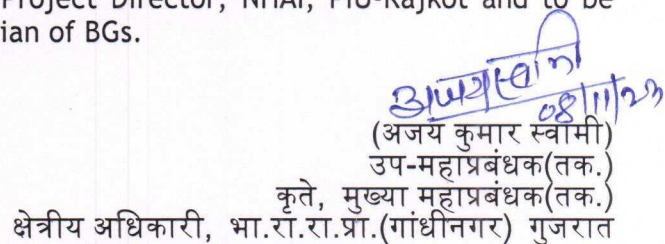 Project Director, NHAI, PIU-Rajkot and to be
ian of BGs.
अजय स्वामी
08/11/23
(अजय कुमार स्वामी)
उप-महाप्रबंधक(तक.)
कृते, मुख्या महाप्रबंधक(तक.)
क्षेत्रीय अधिकारी, भा.रा.रा.प्रा.(गांधीनगर) गुजरात